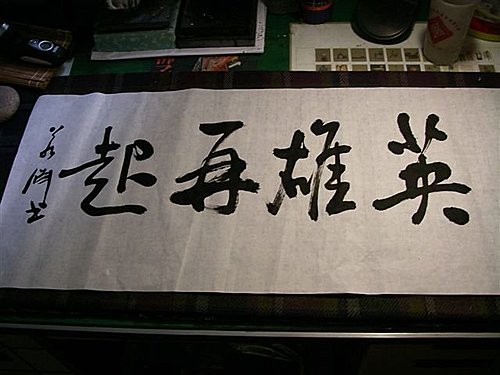 英雄再起